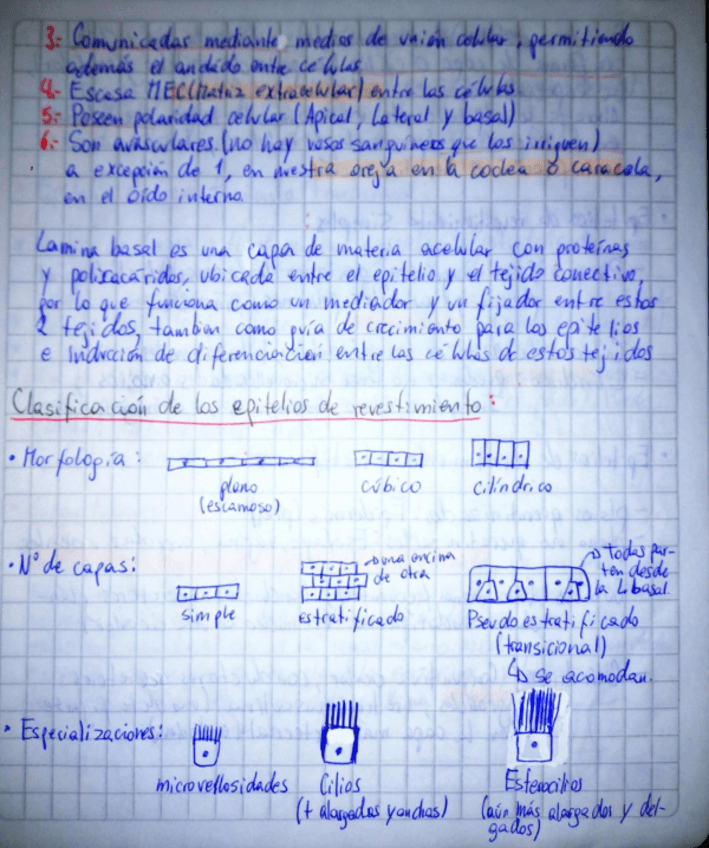 3.- Comunicadas mediante medios de unión celular, permitiendo
además el anclado entre células
4.- Escasa MEC(Matriz extracelular) entre las células
5.- Poseen polaridad celular (Apical, Lateral y basal)
6.- Son avasculares (no hay vasos sanguíneos que los irriguen)
a excepción de 1, en nuestra oreja en la coclea o caracola,
en el oído interno.
Lamina basal es una capa de materia acelular con proteínas
y polisacáridos, ubicada entre el epitelio y el tejido conectivo,
por lo que funciona como un mediador y un fijador entre estos
2 tejidos, tambien como guía de crecimiento para los epitelios
e inducción de diferenciación entre las células de estos tejidos
Clasificación de los epitelios de revestimiento:
• Morfología:
plano
(escamoso)
cúbico
cilíndrico
• N° de capas:
simple
una encima
de otra
estratificado
todas par-
ten desde
la L. basal.
Pseudoestratificado
(transicional)
se acomodan.
• Especializaciones:
microvellosidades
Cilios
(+ alargados y anchos)
Estereocilios
(aún más alargados y del-
gados)